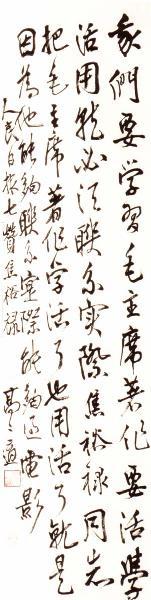 我們要学習毛主席著作要活學
活用就必须联系实際焦裕禄同志
把毛主席著作学活了也用活了就是
因為他能夠联系實際能夠電影
人民日报七赞焦裕禄 高二適